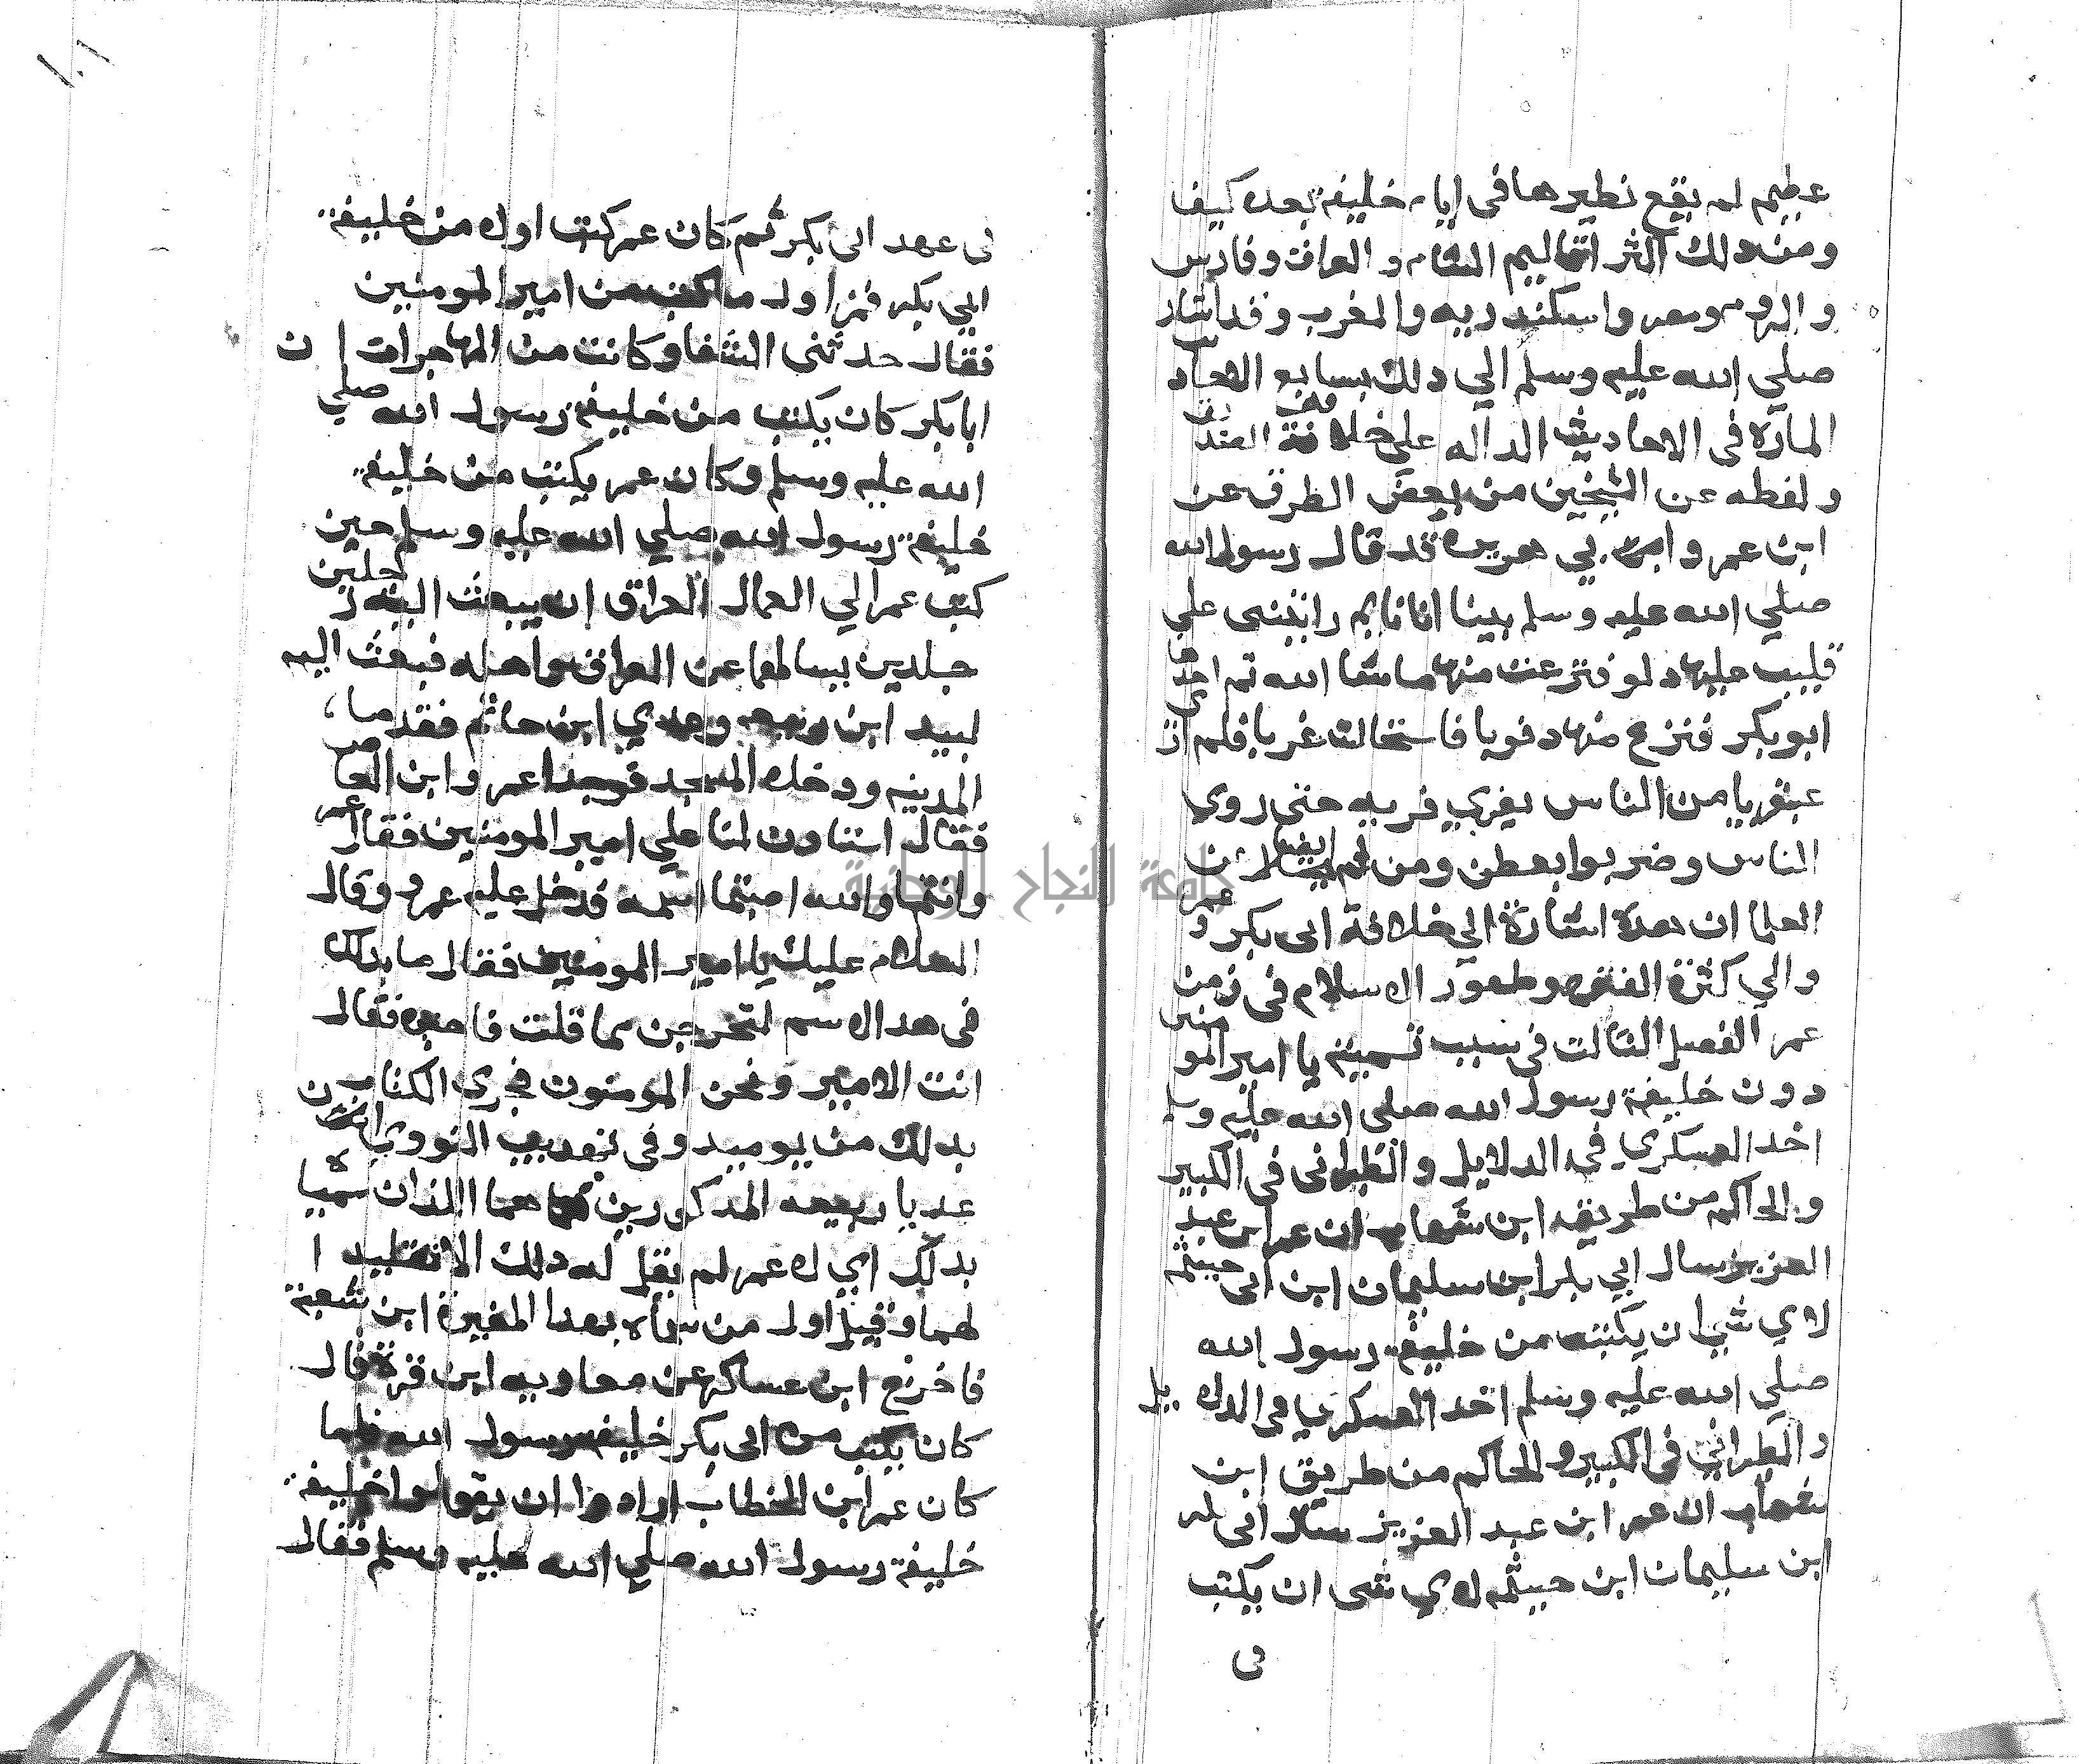 عظيم لم يقع نظيرها في ايام خليفة بعده كيف
ومن دلك اكثر اقاليم الشام و العراق وفارس
و الروم ومصر واسكندريه والمغرب وقد اشار
صلي الله عليه وسلم الي دلك بسابع الاحاد
المارة في الاحاديث الداله على خلافة الصديق
ولفظه عن الشيخين من بعض الطرق عن
ابن عمر و ابي هريره قد قال رسول الله
صلي الله عليه وسلم بينا انا نايم رايتني علي
قليب عليها دلو فنزعت منها ما شا الله ثم اخدها
ابو بكر فنزع منها دنوبا فاستحالت غربا فلم ارى
عبقريا من الناس يفري فريه حتى روي
الناس وضربوا بعطن ومن ثم ايضا ان
العلما ان هده اشارة الي خلافة ابى بكر و عمر
والي كثرة الفتوح وظهور الاسلام في زمن
عمر الفصل الثالت في سبب تسميته يا امير المومنين
دون خليفة رسول الله صلى الله عليه وسلم
اخد العسكري في الدلايل والطبراني في الكبير
والحاكم من طريقه ابن شهاب ان عمر ابن عبد
العزيز سال ابي بكر ابن سليمان ابن ابى حبيثمه
لاي شي ان يكتب من خليفة رسول الله
صلي الله عليه وسلم اخد العسكري في الدلايل
والطبراني في الكبير والحاكم من طريق ابن
شهاب ان عمر ابن عبد العزيز سال ابى بكر
ابن سليمان ابن حبيثمه لاي شى ان يكتب
في
١٠١
في عهد ابى بكر ثم كان عمر كتب اولا من خليفة
ابي بكر فمن اول ما كتب من امير المومنين
فقال حدثني الشفا وكانت من المهاجرات ان
ابا بكر كان يكتب من خليفة رسول الله صلي
الله عليه وسلم وكان عمر يكتب من خليفة
خليفة رسول الله صلي الله عليه وسلم حين
كتب عمر الي العمال العراق ان يبعث اليه رجلين
جلدين يسالهما عن العراق واهله فبعث اليه
لبيد ابن ربيعه وعدي ابن حاتم فقدما
المدينه ودخلا المسجد فوجدا عمرو ابن العاص
فقالا استادن لنا علي امير المومنين فقال عمر
وانتما والله اصبتما اسمه فدخل عليه عمرو وقال
السلام عليك يا امير المومنين فقال ما بدالك
في هدا الاسم لتخرجن مما قلت فاخبره فقال
انت الامير ونحن المومنون فجرى الكتاب
بدلك من يوميد وفي تهديب النووي ان
عديا ربيعه المدكورين هما اللذان سمياه
بدلك اي لا عمر لم يقل له دلك الا تقليد ا
لهما وقيل اول من سماه بهدا المغيرة ابن شعبة
فاخرج ابن عساكر عن معاويه ابن قرة قال
كان يكتب من ابى بكر خليفة رسول الله فلما
كان عمر ابن الخطاب ارادوا ان يقولوا خليفة
خليفة رسول الله صلي الله عليه وسلم فقال
جامعة النجاح الوطنية